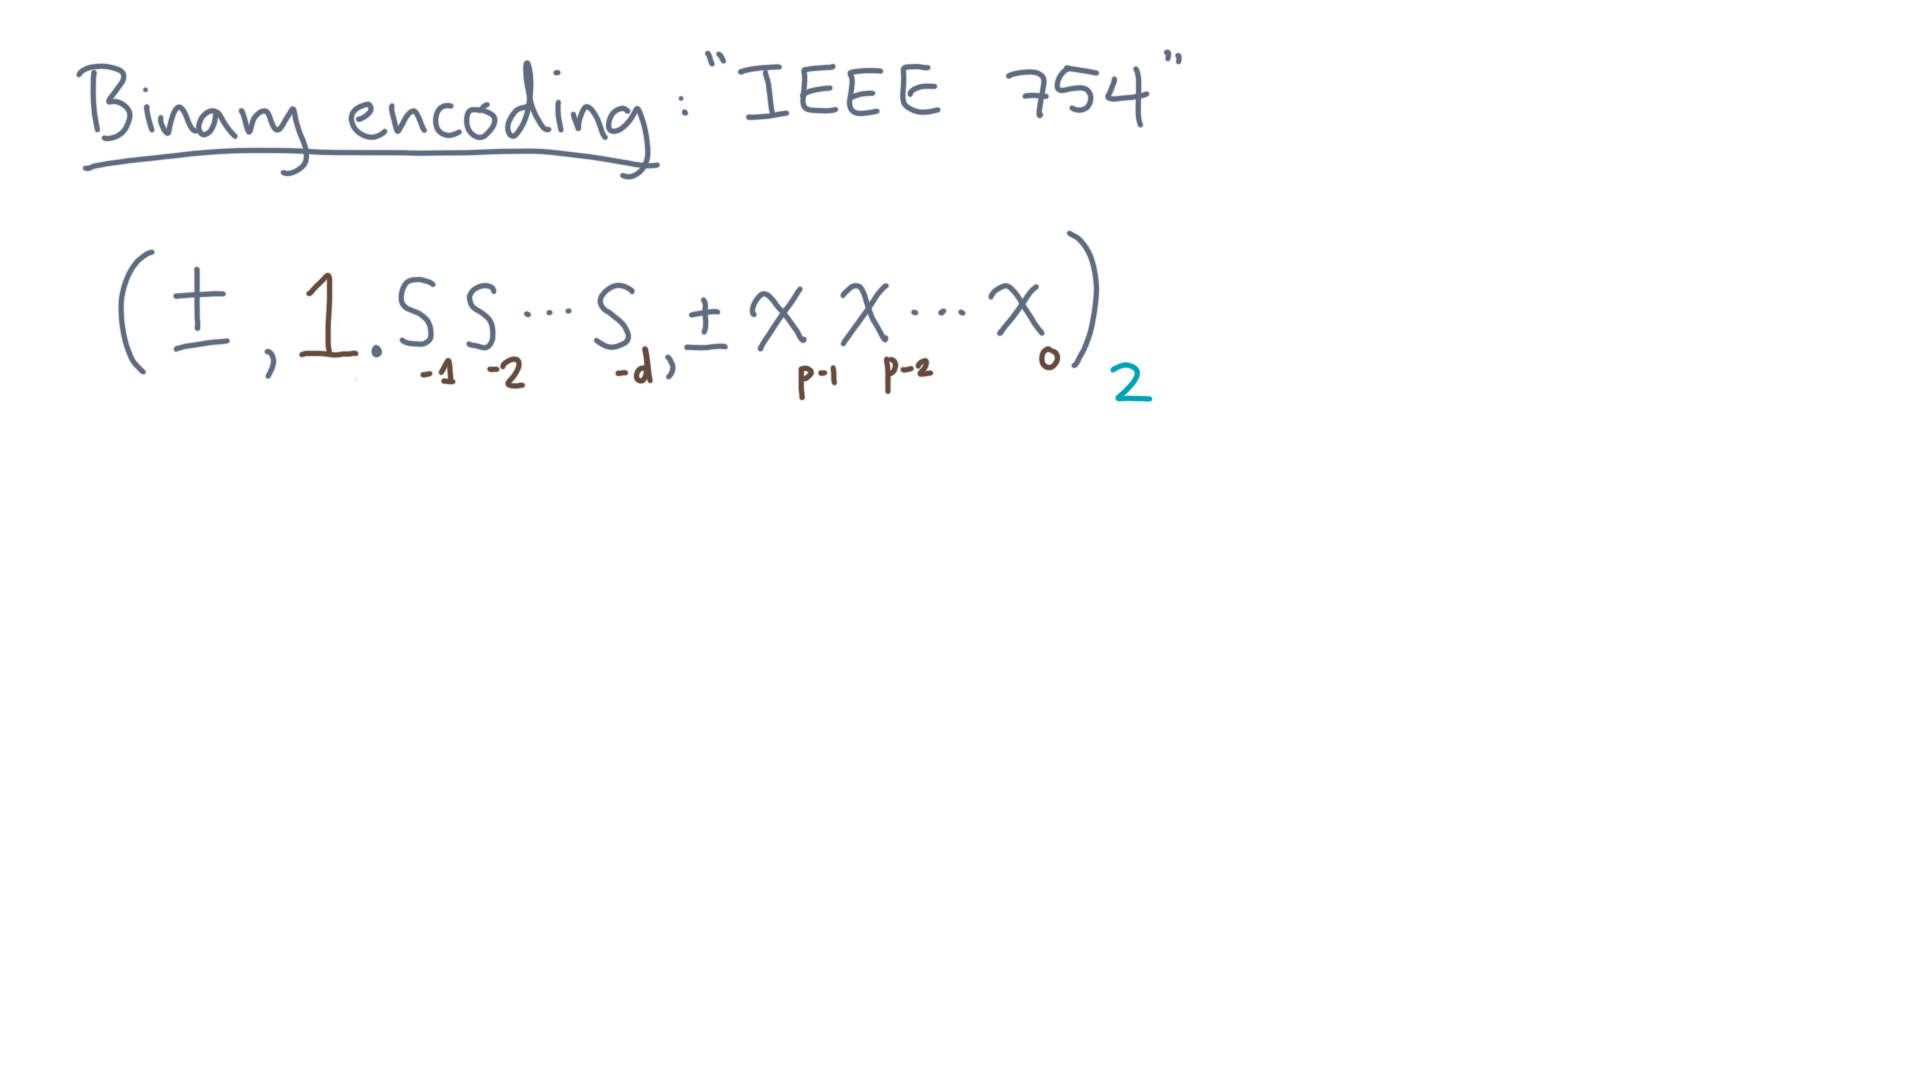 Binary encoding: "IEEE 754"
(±, 1.S₋₁S₋₂···S₋d, ±Xₚ₋₁Xₚ₋₂···X₀)₂